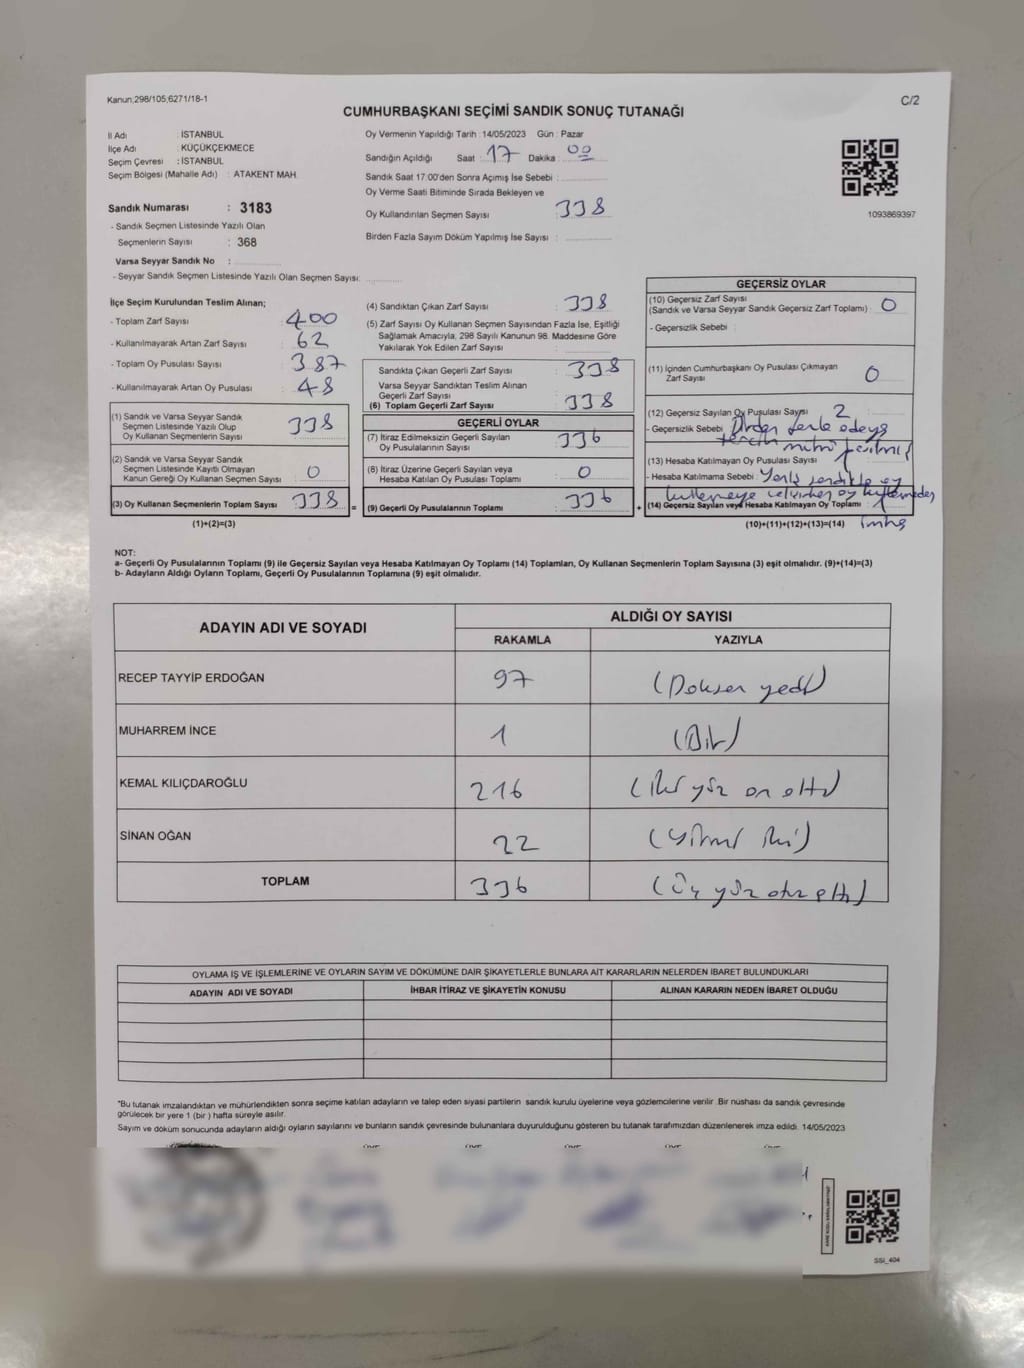 Kanun;298/105;6271/18-1
C/2
CUMHURBAŞKANI SEÇİMİ SANDIK SONUÇ TUTANAĞI
İl Adı : İSTANBUL
İlçe Adı : KÜÇÜKÇEKMECE
Seçim Çevresi : İSTANBUL
Seçim Bölgesi (Mahalle Adı) : ATAKENT MAH.
Sandık Numarası : 3183
- Sandık Seçmen Listesinde Yazılı Olan
Seçmenlerin Sayısı : 368
Varsa Seyyar Sandık No :
- Seyyar Sandık Seçmen Listesinde Yazılı Olan Seçmen Sayısı:
Oy Vermenin Yapıldığı Tarih : 14/05/2023 Gün : Pazar
Sandığın Açıldığı Saat : 17 Dakika : 00
Sandık Saat 17.00'den Sonra Açımış İse Sebebi :
Oy Verme Saati Bitiminde Sırada Bekleyen ve
Oy Kullandırılan Seçmen Sayısı : 338
Birden Fazla Sayım Döküm Yapılmış İse Sayısı :
1093869397
İlçe Seçim Kurulundan Teslim Alınan;
- Toplam Zarf Sayısı : 400
- Kullanılmayarak Artan Zarf Sayısı : 62
- Toplam Oy Pusulası Sayısı : 387
- Kullanılmayarak Artan Oy Pusulası : 48
(1) Sandık ve Varsa Seyyar Sandık
Seçmen Listesinde Yazılı Olup
Oy Kullanan Seçmenlerin Sayısı : 338
(2) Sandık ve Varsa Seyyar Sandık
Seçmen Listesinde Kayıtlı Olmayan
Kanun Gereği Oy Kullanan Seçmen Sayısı : 0
(3) Oy Kullanan Seçmenlerin Toplam Sayısı : 338
(1)+(2)=(3)
(4) Sandıktan Çıkan Zarf Sayısı : 338
(5) Zarf Sayısı Oy Kullanan Seçmen Sayısından Fazla İse, Eşitliği
Sağlamak Amacıyla, 298 Sayılı Kanunun 98. Maddesine Göre
Yakılarak Yok Edilen Zarf Sayısı :
Sandıkta Çıkan Geçerli Zarf Sayısı : 338
Varsa Seyyar Sandıktan Teslim Alınan
Geçerli Zarf Sayısı :
(6) Toplam Geçerli Zarf Sayısı : 338
GEÇERLİ OYLAR
(7) İtiraz Edilmeksizin Geçerli Sayılan
Oy Pusulalarının Sayısı : 336
(8) İtiraz Üzerine Geçerli Sayılan veya
Hesaba Katılan Oy Pusulası Toplamı : 0
= (9) Geçerli Oy Pusulalarının Toplamı : 336 +
GEÇERSİZ OYLAR
(10) Geçersiz Zarf Sayısı
(Sandık ve Varsa Seyyar Sandık Geçersiz Zarf Toplamı) : 0
- Geçersizlik Sebebi :
(11) İçinden Cumhurbaşkanı Oy Pusulası Çıkmayan
Zarf Sayısı 0
(12) Geçersiz Sayılan Oy Pusulası Sayısı : 2
- Geçersizlik Sebebi Birden fazla adaya
tercih mührü
(13) Hesaba Katılmayan Oy Pusulası Sayısı :
- Hesaba Katılmama Sebebi : Yanlış sandıkta oy
kullanmaya
(14) Geçersiz Sayılan veya Hesaba Katılmayan Oy Toplamı :
(10)+(11)+(12)+(13)=(14) imha
NOT:
a- Geçerli Oy Pusulalarının Toplamı (9) ile Geçersiz Sayılan veya Hesaba Katılmayan Oy Toplamı (14) Toplamları, Oy Kullanan Seçmenlerin Toplam Sayısına (3) eşit olmalıdır. (9)+(14)=(3)
b- Adayların Aldığı Oyların Toplamı, Geçerli Oy Pusulalarının Toplamına (9) eşit olmalıdır.
ADAYIN ADI VE SOYADI
ALDIĞI OY SAYISI
RAKAMLA YAZIYLA
RECEP TAYYİP ERDOĞAN 97 (Doksan yedi)
MUHARREM İNCE 1 (Bir)
KEMAL KILIÇDAROĞLU 216 (İki yüz on altı)
SİNAN OĞAN 22 (Yirmi iki)
TOPLAM 336 (Üç yüz otuz altı)
OYLAMA İŞ VE İŞLEMLERİNE VE OYLARIN SAYIM VE DÖKÜMÜNE DAİR ŞİKAYETLERLE BUNLARA AİT KARARLARIN NELERDEN İBARET BULUNDUKLARI
ADAYIN ADI VE SOYADI İHBAR İTİRAZ VE ŞİKAYETİN KONUSU ALINAN KARARIN NEDEN İBARET OLDUĞU
*Bu tutanak imzalandıktan ve mühürlendikten sonra seçime katılan adayların ve talep eden siyasi partilerin sandık kurulu üyelerine veya gözlemcilerine verilir. Bir nüshası da sandık çevresinde
görülecek bir yere 1 (bir ) hafta süreyle asılır.
Sayım ve döküm sonucunda adayların aldığı oyların sayılarını ve bunların sandık çevresinde bulunanlara duyurulduğunu gösteren bu tutanak tarafımızdan düzenlenerek imza edildi. 14/05/2023
SSİ_404